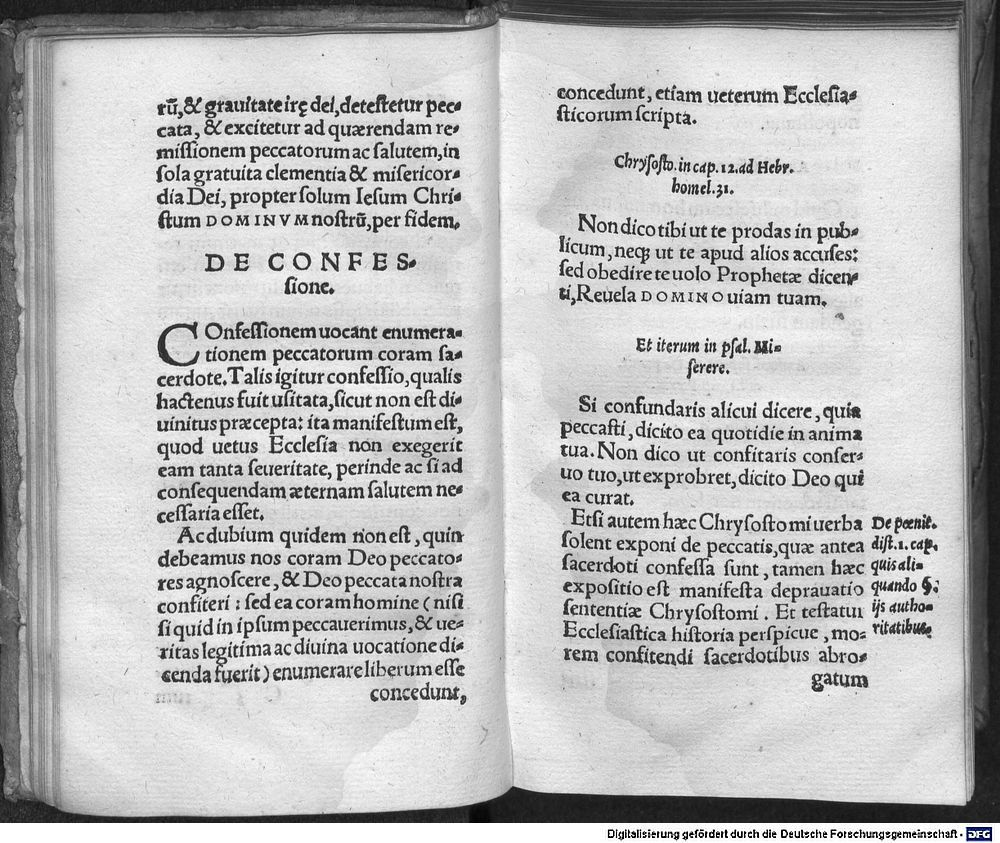 rū, & grauitate irę dei, detestetur pec-
cata, & excitetur ad quærendam re-
missionem peccatorum ac salutem, in
sola gratuita clementia & misericor-
dia Dei, propter solum Iesum Chri-
stum DOMINVM nostrū, per fidem.
DE CONFES-
sione.
COnfessionem uocant enumera-
tionem peccatorum coram sa-
cerdote. Talis igitur confessio, qualis
hactenus fuit usitata, sicut non est di-
uinitus præcepta: ita manifestum est,
quod uetus Ecclesia non exegerit
eam tanta seueritate, perinde ac si ad
consequendam æternam salutem ne-
cessaria esset.
Ac dubium quidem non est, quin
debeamus nos coram Deo peccato-
res agnoscere, & Deo peccata nostra
confiteri: sed ea coram homine (nisi
si quid in ipsum peccauerimus, & ue-
ritas legitima ac diuina uocatione di-
cenda fuerit) enumerare liberum esse
concedunt,
concedunt, etiam ueterum Ecclesia-
sticorum scripta.
Chrysosto. in cap. 12. ad Hebr.
homel. 31.
Non dico tibi ut te prodas in pub-
licum, neqꝫ ut te apud alios accuses:
sed obedire te uolo Prophetæ dicen-
ti, Reuela DOMINO uiam tuam.
Et iterum in psal. Mi-
serere.
Si confundaris alicui dicere, quia
peccasti, dicito ea quotidie in anima
tua. Non dico ut confitaris conser-
uo tuo, ut exprobret, dicito Deo qui
ea curat.
Etsi autem hæc Chrysostomi uerba
solent exponi de peccatis, quæ antea
sacerdoti confessa sunt, tamen hæc
expositio est manifesta deprauatio
sententiæ Chrysostomi. Et testatur
Ecclesiastica historia perspicue, mo-
rem confitendi sacerdotibus abro-
gatum
De pœnit.
dist. 1. cap.
quis ali-
quando §.
ijs autho-
ritatibus.
Digitalisierung gefördert durch die Deutsche Forschungsgemeinschaft - DFG